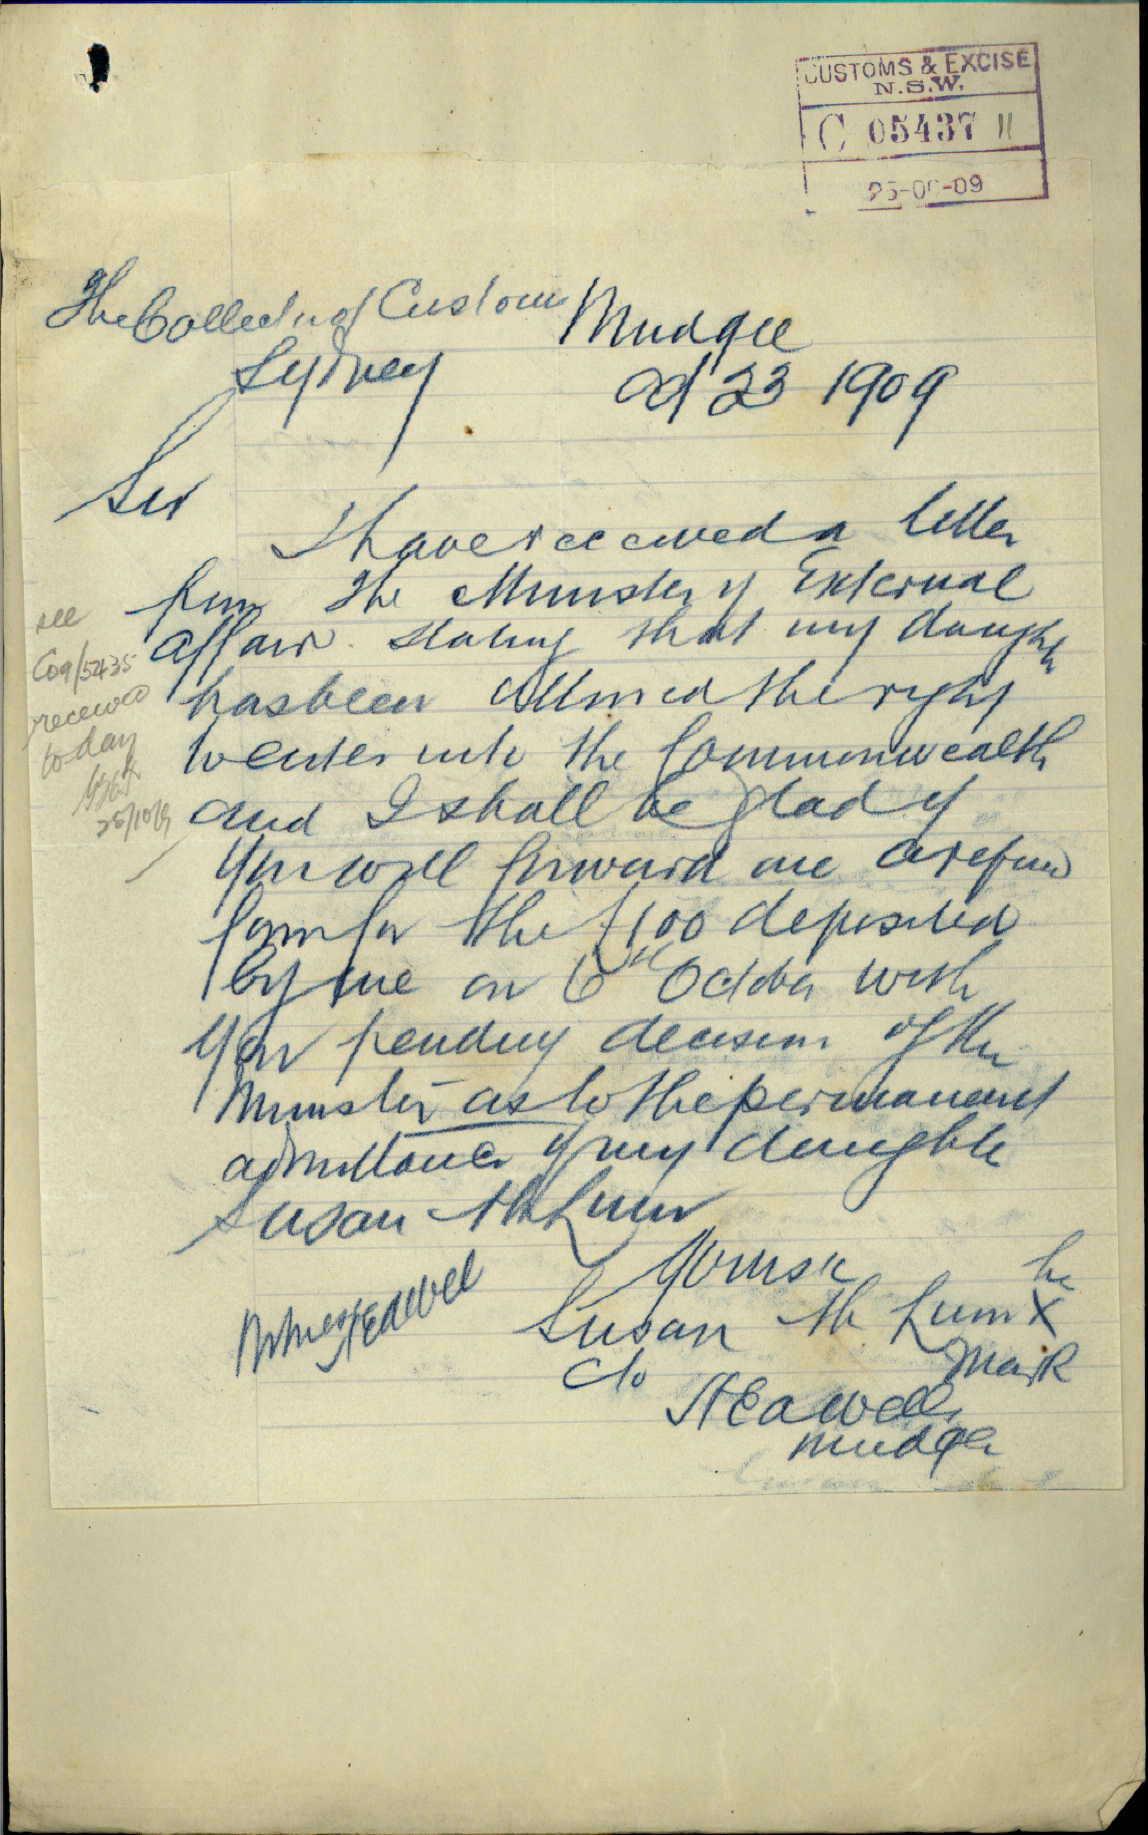 CUSTOMS & EXCISE
N.S.W.
C 05437
-09
The Collector of Customs
Sydney
Mudgee
Oct 23 1909
Sir
I have received a letter
from the Minister of External
affairs stating that my daughter
has been allowed the right
to enter into the Commonwealth
and I shall be glad if
you will forward me a refund
form for the £100 deposited
by me on 6th October with
you pending decision of the
Minister as to the permanent
admittance of my daughter
Susan Ah Lum
Yours &c
Susan Ah Lum X
her
mark
c/o
Mudgee
Witness
see
C09/5435
received
today
25/10/9